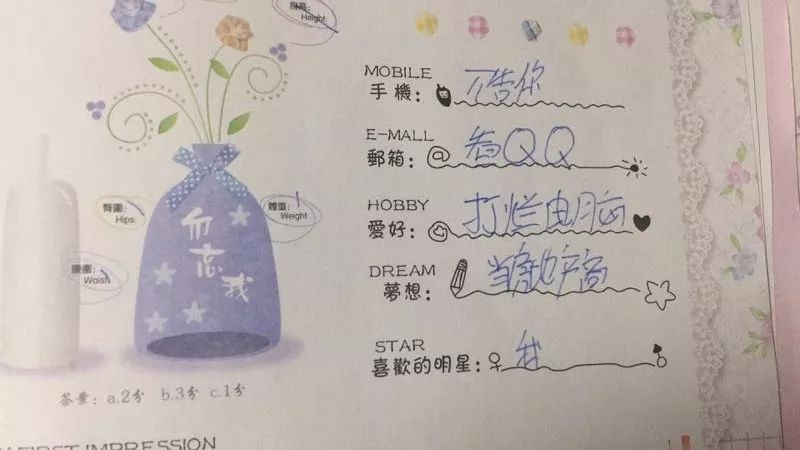 身高: Height:
MOBILE
手機: 不告你
E-MALL
郵箱: @ 看QQ
臀圍: Hips:
體重: Weight:
HOBBY
愛好: 打烂电脑
勿忘我
腰圍: Waist:
DREAM
夢想: 当房地产商
STAR
喜歡的明星: 我
答案: a.2分 b.3分 c.1分
FIRST IMPRESSION